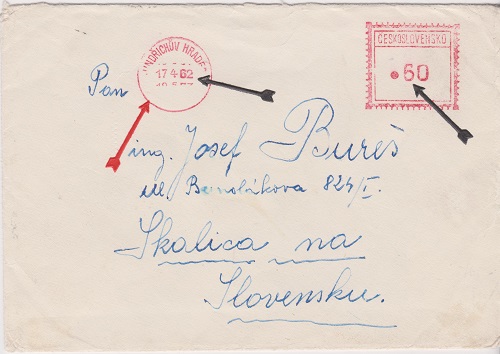 JINDŘICHŮV HRADEC
17.4.62
ČESKOSLOVENSKO
60
Pan
ing. Josef Bureš
ul. Bernolákova 824/I.
Skalica na
Slovensku.